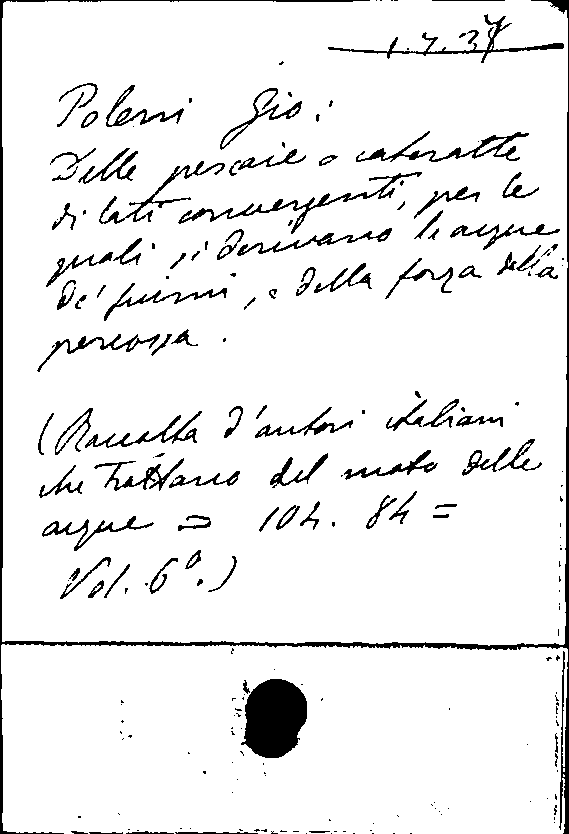 1.7.37
Poleni Gio:
Delle pescaie o cateratte
di lati convergenti, per le
quali si derivano le acque
de' fiumi, e della forza della
percossa.
(Raccolta d'autori italiani
che trattano del moto delle
acque = 104. 84 =
Vol. 6º.)